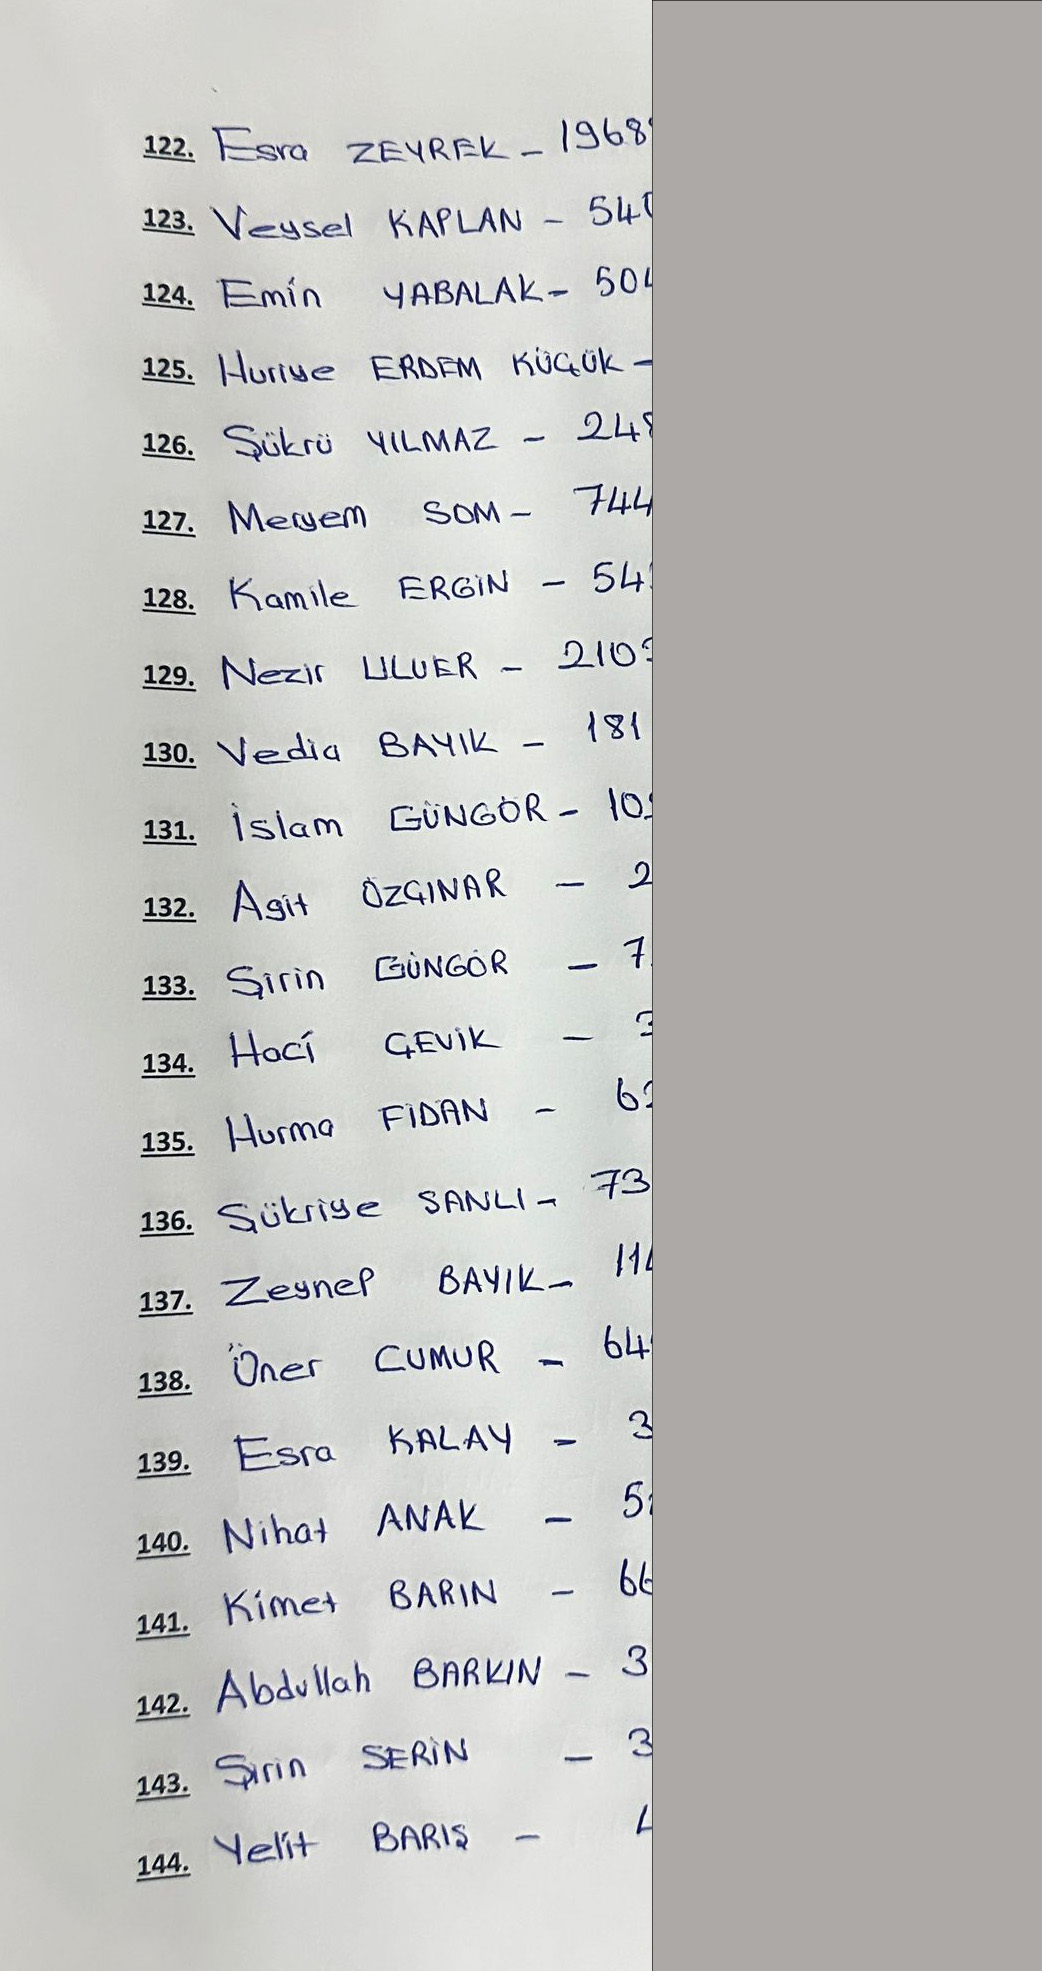 122. Esra ZEYREK - 1968
123. Veysel KAPLAN - 540
124. Emin YABALAK - 504
125. Huriye ERDEM KÜÇÜK -
126. Şükrü YILMAZ - 248
127. Meryem SOM - 744
128. Kamile ERGİN - 54
129. Nezir ULUER - 210
130. Vedia BAYIK - 181
131. İslam GÜNGÖR - 10
132. Agit ÖZÇINAR - 2
133. Şirin GÜNGÖR - 7
134. Haci ÇEVİK - 3
135. Hurma FİDAN - 6
136. Şükriye SANLI - 73
137. Zeynep BAYIK - 11
138. Öner CUMUR - 64
139. Esra KALAY - 3
140. Nihat ANAK - 5
141. Kimet BARIN - 66
142. Abdullah BARKIN - 3
143. Şirin SERİN - 3
144. Yelit BARIŞ -